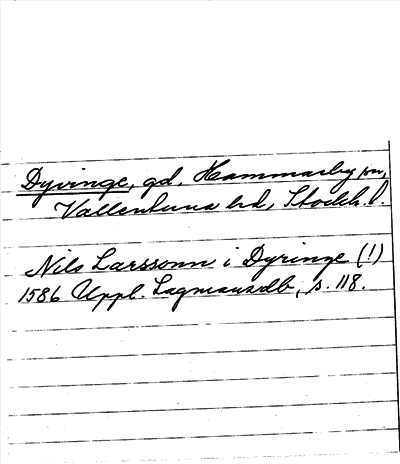 Dyvinge, gd, Hammarby sn,
Vallentuna hd, Stockh. l.
Nils Larssonn i Dyringe (!)
1586 Uppl. Lagmansdb, s. 118.